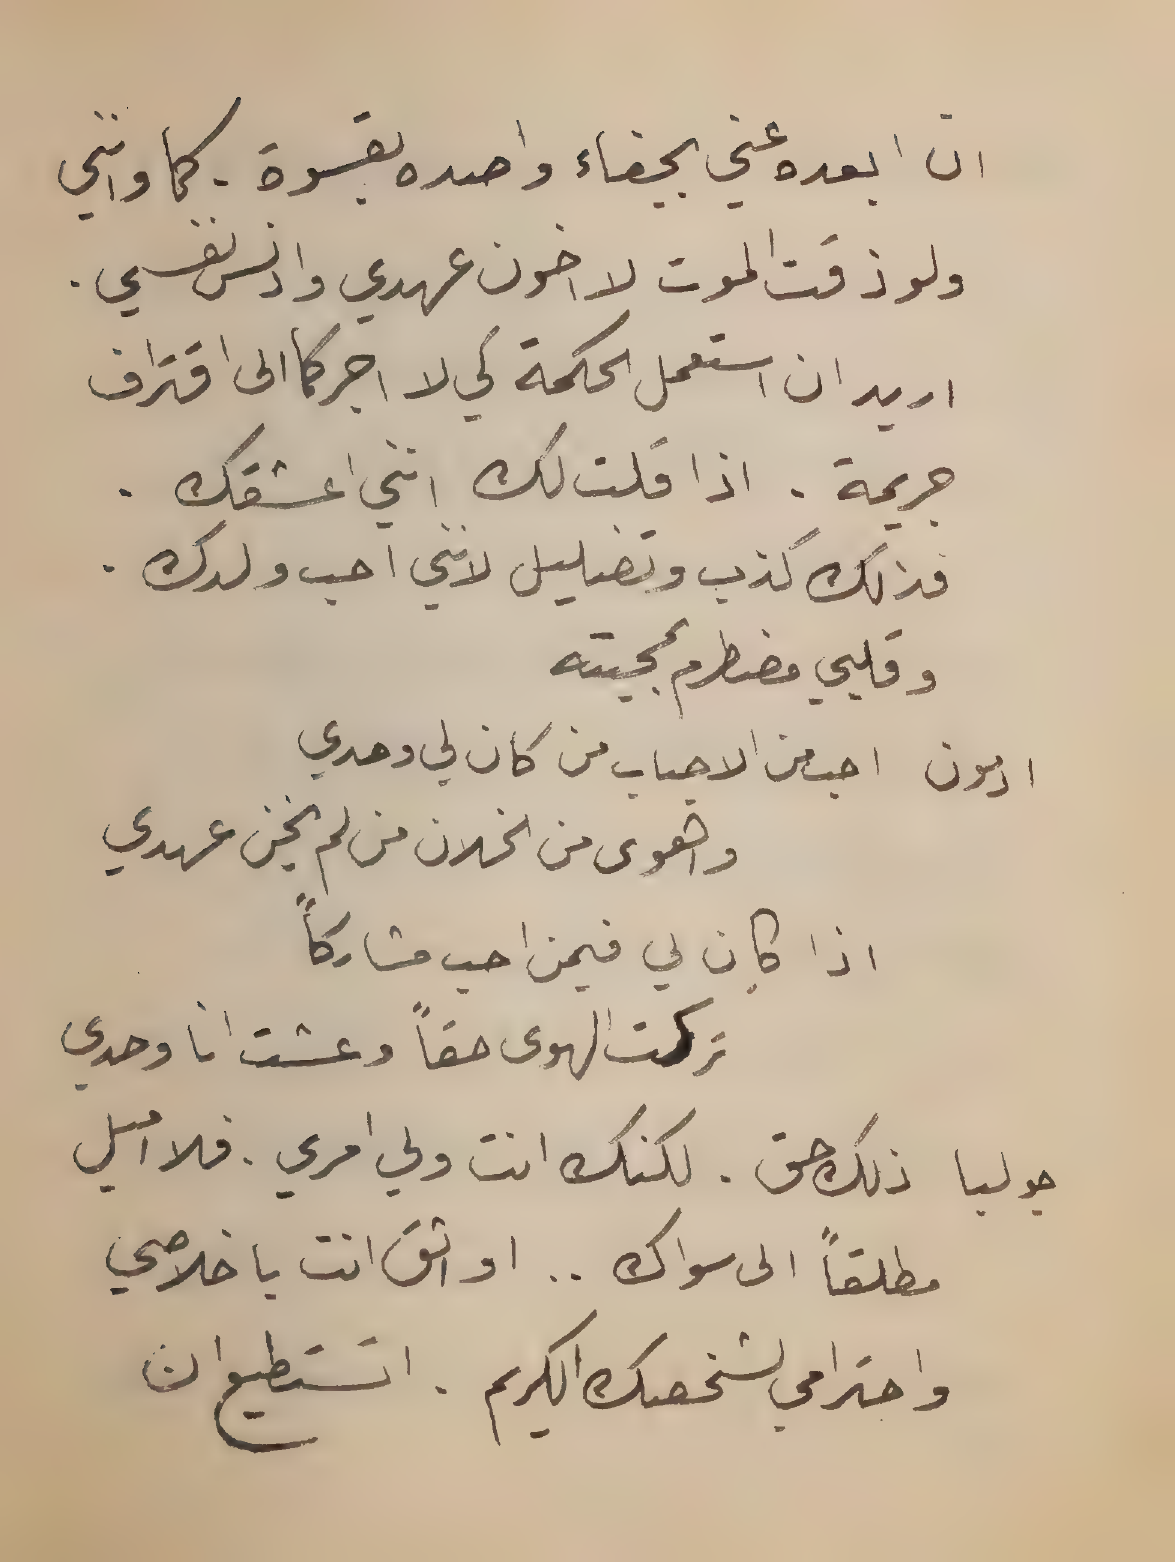 ان ابعده عني بجفاء واصده بقسوة . كما وانني
ولو ذقت الموت لا اخون عهدي وادنس نفسي .
اريد ان استعمل الحكمة كي لا اجركما الى اقتراف
جريمة . اذا قلت لك انني اعشقك .
فذلك كذب وتضليل لانني احب ولدك .
وقلبي مضطرم بمحبته
ادمون احب من الاحباب من كان لي وحدي
واهوى من الخلان من لم يخن عهدي
اذا كان لي فيمن احب مشاركاً
تركت الهوى حقاً وعشت انا وحدي
جوليا ذلك حق . لكنك انت ولي امري . فلا اميل
مطلقاً الى سواك .. او اثق انت باخلاصي
واحترامي لشخصك الكريم . اتستطيع ان